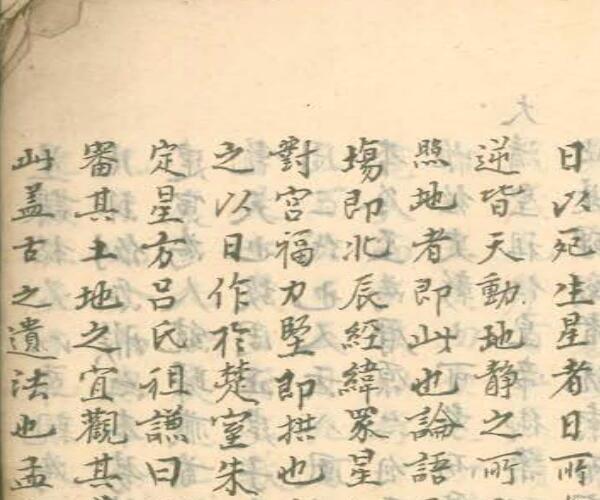 日以死生星者日所
逆皆天動地靜之所
照地者即此也論語
塲即北辰經緯眾星
對宮福力堅即拱也
之以日作於楚室朱
定星方呂氏祖謙曰
審其土地之宜觀其
此盖古之遺法也孟